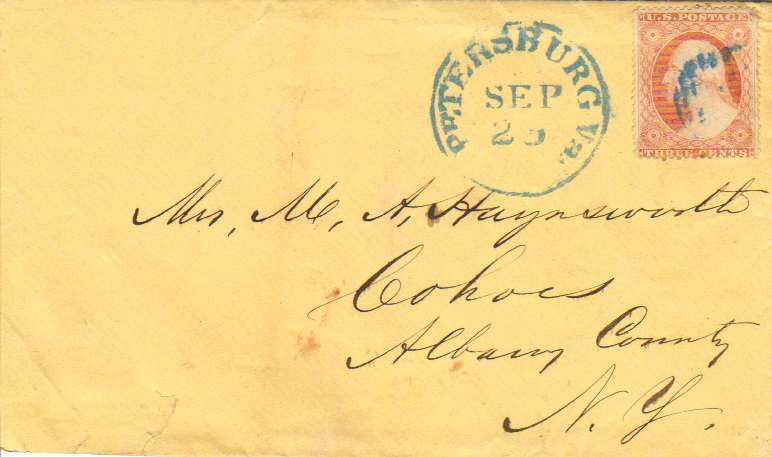 PETERSBURG Va.
SEP
25
U.S. POSTAGE
THREE CENTS
Mrs. M. A. Haynsworth
Cohoes
Albany County
N. Y.